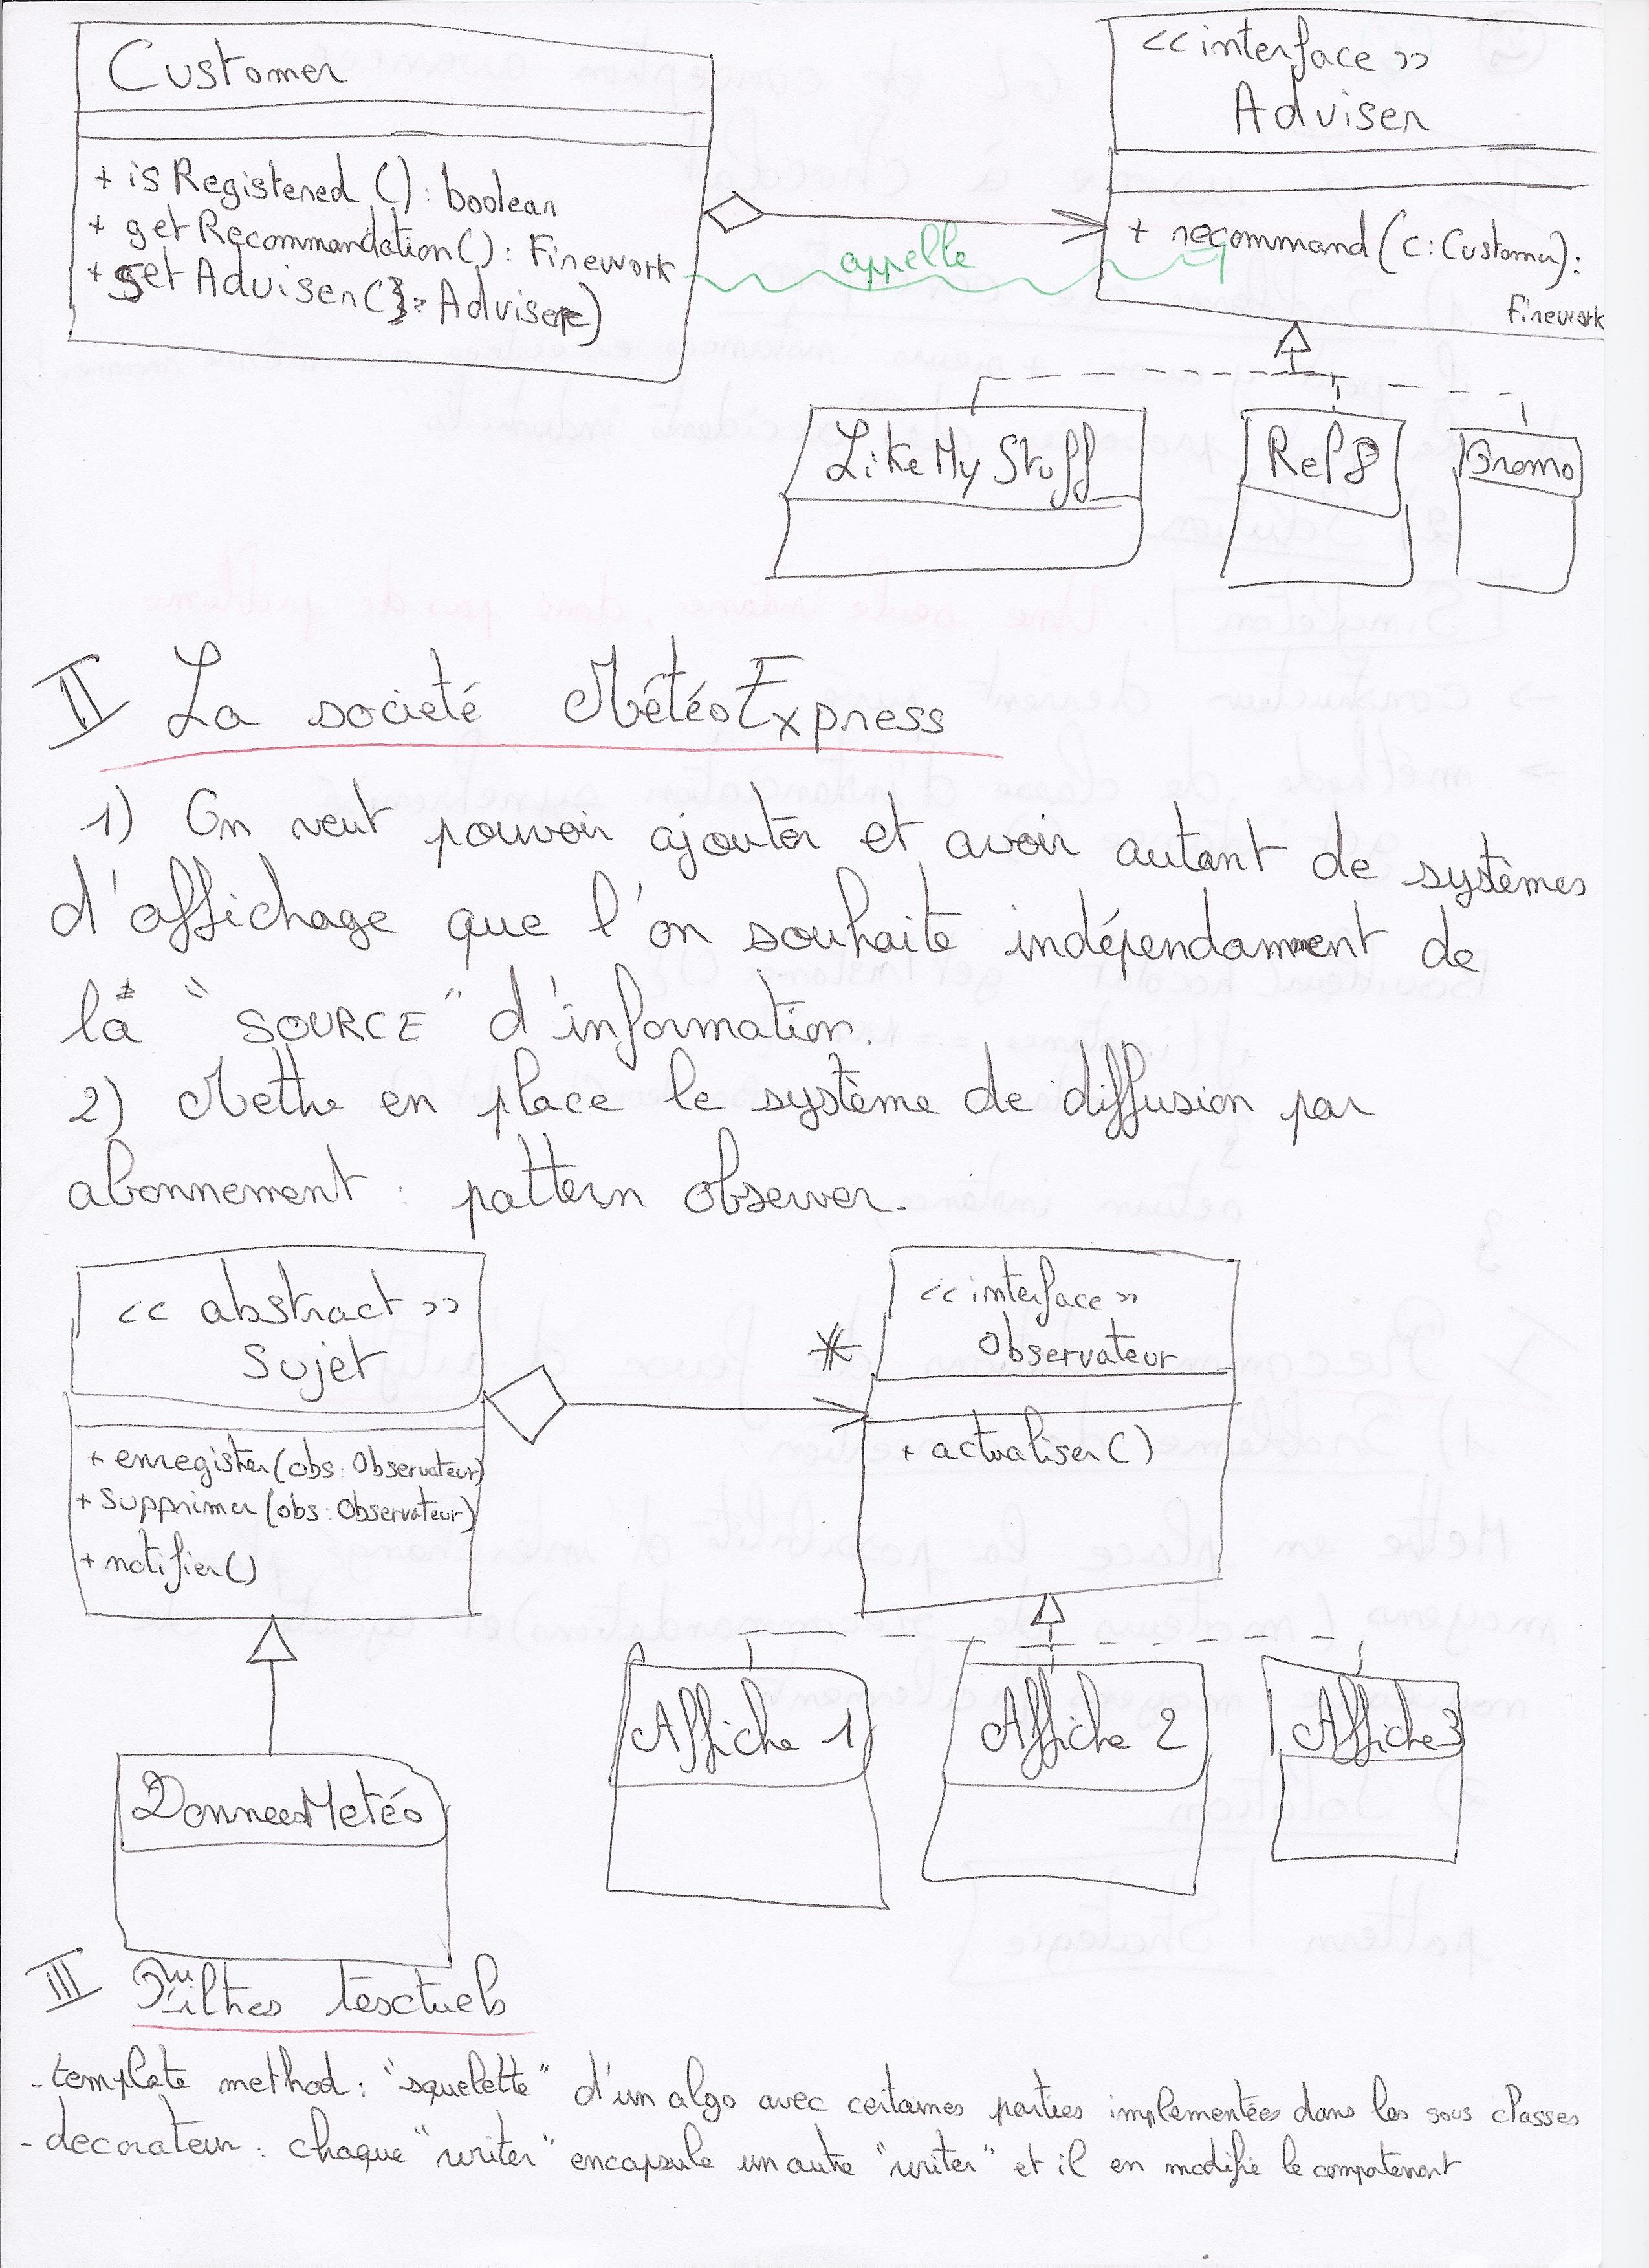 Customer
+ isRegistered () : boolean
+ getRecommandation() : Firework
+ setAdviser( : Adviser)
appelle
<<interface>>
Adviser
+ recommand (c : Customer) :
Firework
LikeMyStuff
Promo
II La societé MétéoExpress
1) On veut pouvoir ajouter et avoir autant de systèmes
d'affichage que l'on souhaite indépendamment de
la "SOURCE" d'information.
2) Mettre en place le système de diffusion par
abonnement : pattern observer.
<< abstract >>
Sujet
+ enregistrer (obs : Observateur)
+ supprimer (obs : Observateur)
+ notifier ()
*
<< interface >>
Observateur
+ actualiser ()
Affiche 1
Affiche 2
Affiche 3
DonneesMetéo
III Filtres textuels
- template method : "squelette" d'un algo avec certaines parties implementées dans les sous classes
- decorateur : chaque "writer" encapsule un autre "writer" et il en modifie le comportement